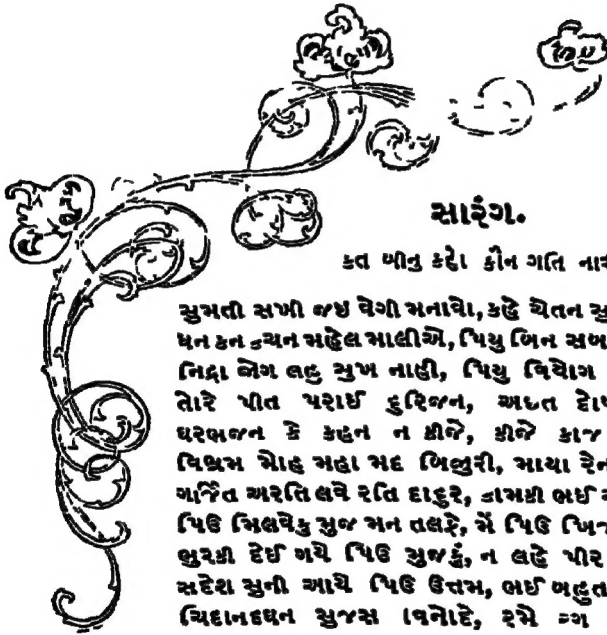 સારંગ.
કત બીનુ કહો કૌન ગતિ
સુમતી સખી જઇ વેગી મનાવો, કહે ચેતન
ધન કન મહેલ માલીએ, પિયુ બિન સબ
નિદ્રા જોગ લહુ સુખ નાહી, પિયુ વિયોગ
તોરે પીત પરાઈ દુરિજન, અછત
ઘરભજન કે કહન ન કીજે, કીજે કાજ
વિભ્રમ મોહ મહા મદ બિજુરી, માયા રેન
ગર્જિત અરતિ લવે રતિ દાદુર, કામકી ભઈ
પિઉ મિલવેકુ મુજ મન તલફે, મેં પિઉ
ભુરકી દેઈ ગયે પિઉ મુજકું, ન લહે પીર
સદેશ સુની આયે પિઉ ઉત્તમ, ભઈ બહુત
ચિદાનદઘન સુજસ વિનોદે, રમે